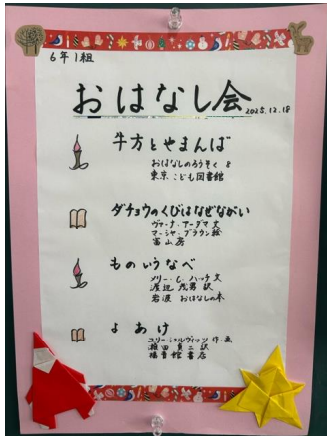 6年1組
おはなし会 2025.12.18
牛方とやまんば
おはなしのろうそく 8
東京こども図書館
ダチョウのくびはなぜながい
ヴァーナ・アーダマ 文
マーシャ・ブラウン 絵
冨山房
ものいうなべ
メリー・C・ハッチ 文
渡辺茂男 訳
岩波 おはなしの本
よあけ
ユリー・シュルヴィッツ 作・画
瀬田貞二 訳
福音館書店